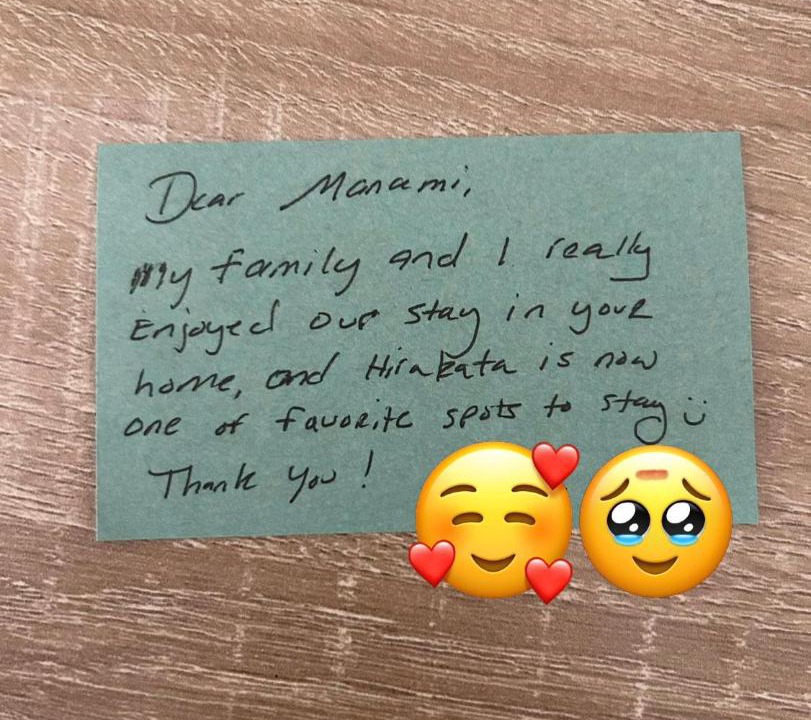 Dear Manami,
My family and I really
Enjoyed our stay in your
home, and Hirakata is now
one of favorite spots to stay :)
Thank you!